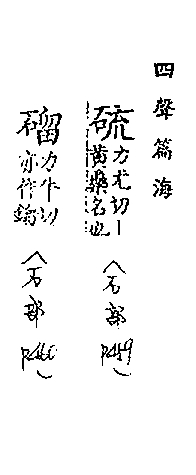 四聲篇海
硫力尤切｜
黃藥名也
〈石部
P459〉
磂力牛切
亦作鎦
〈石部
P460〉